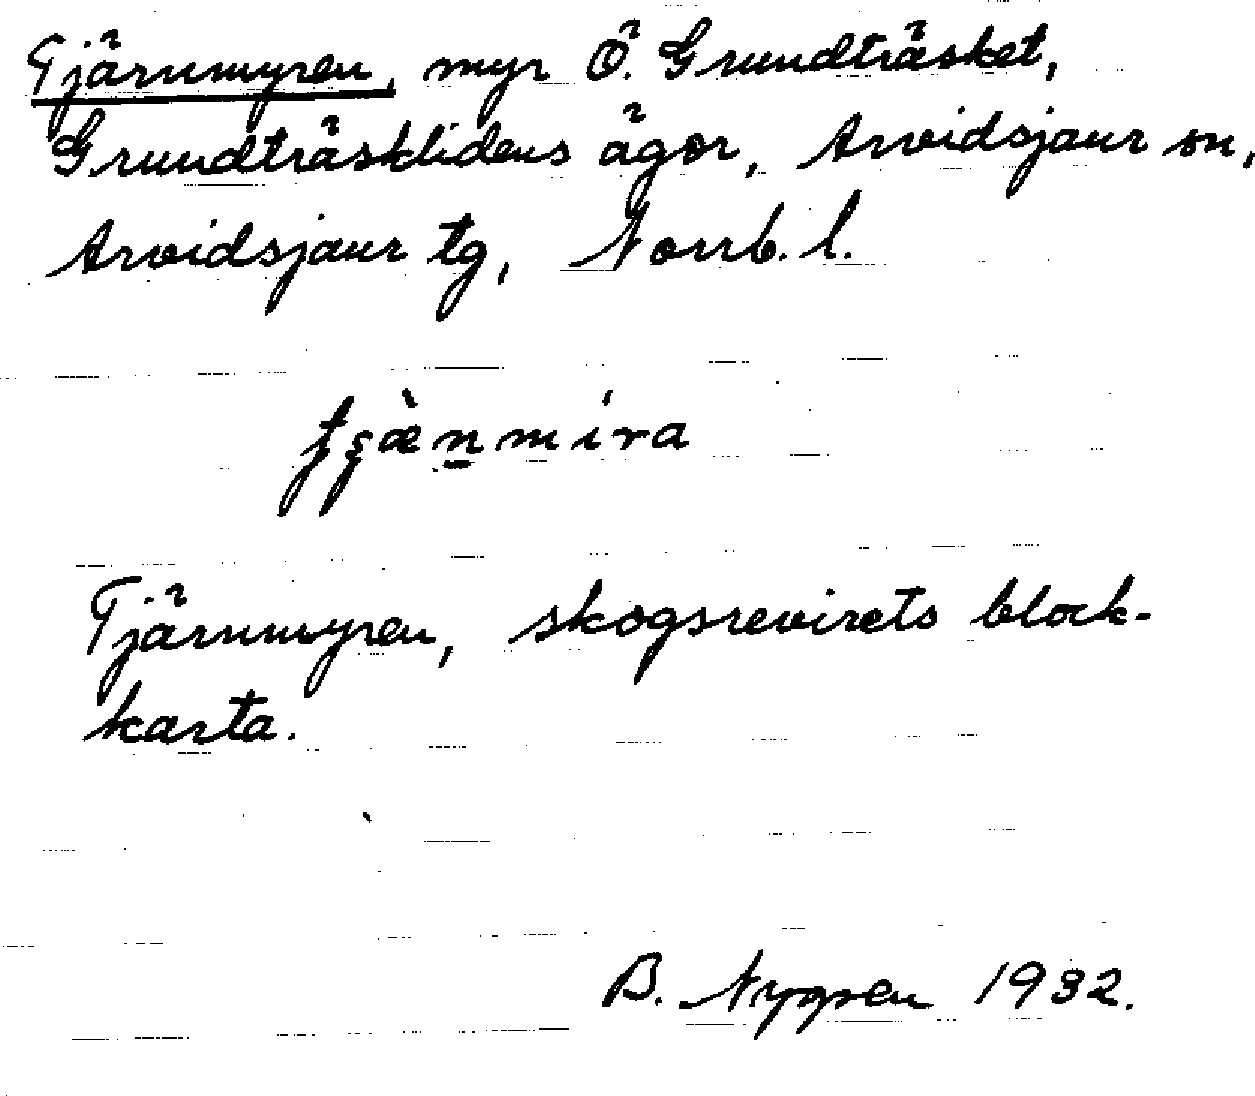 Tjärnmyren, myr Ö. Grundträsket,
Grundträsklidens ägor, Arvidsjaur sn,
Arvidsjaur tg, Norrb. l.
Tjärnmyren, skogsrevirets block-
karta.
B. Nygren 1932.